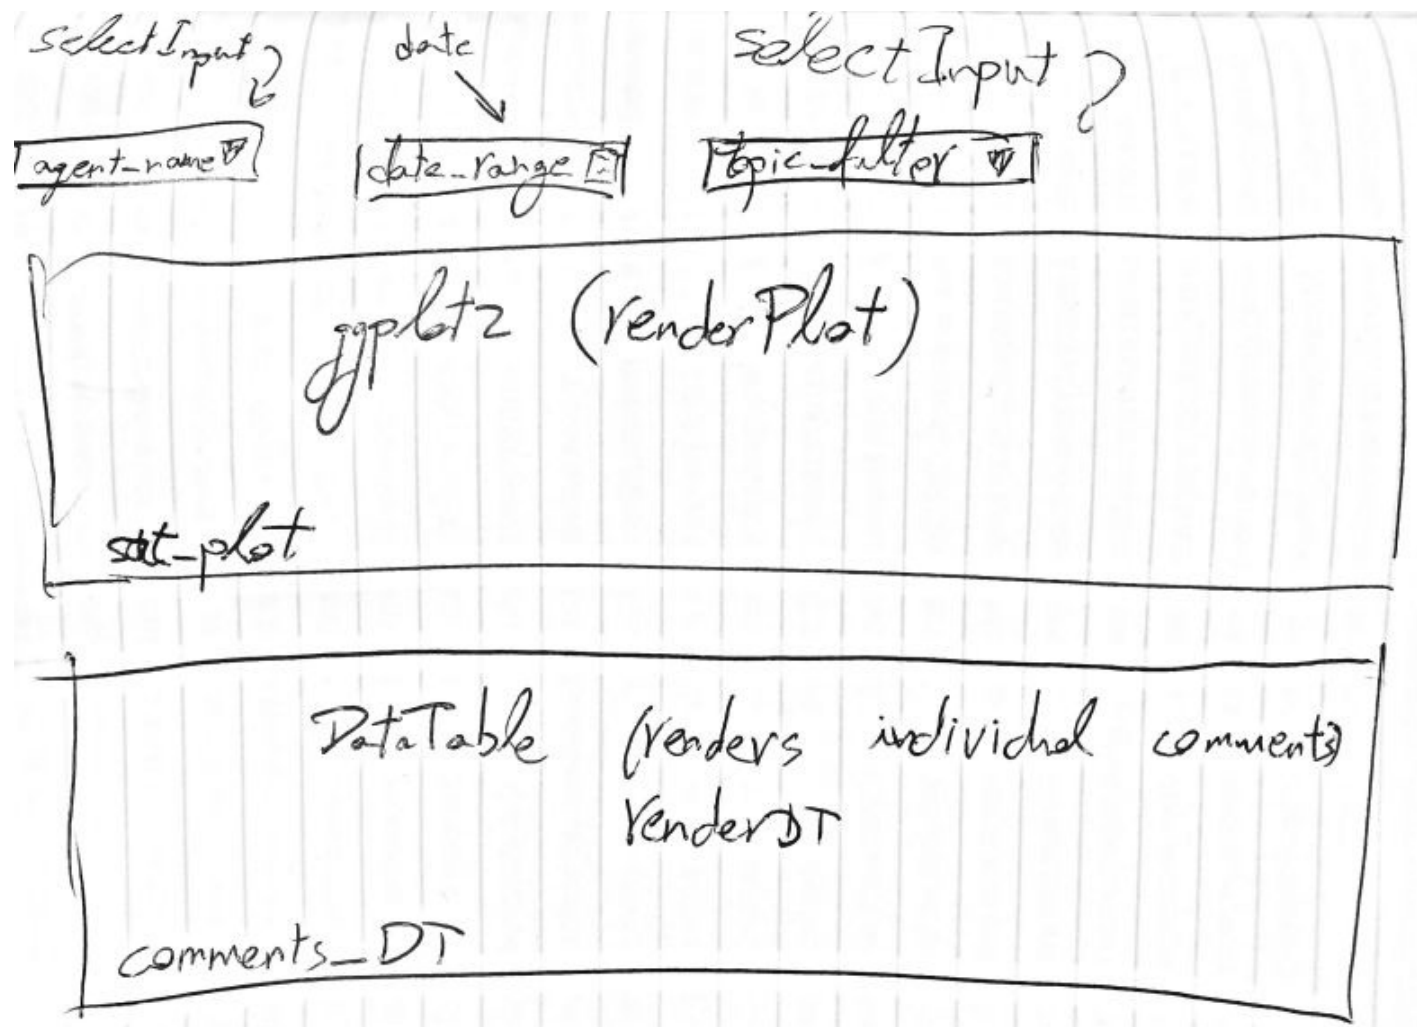 selectInput date selectInput
agent_name date_range topic_filter
ggplot2 (renderPlot)
sat_plot
DataTable (renders individual comments)
renderDT
comments_DT